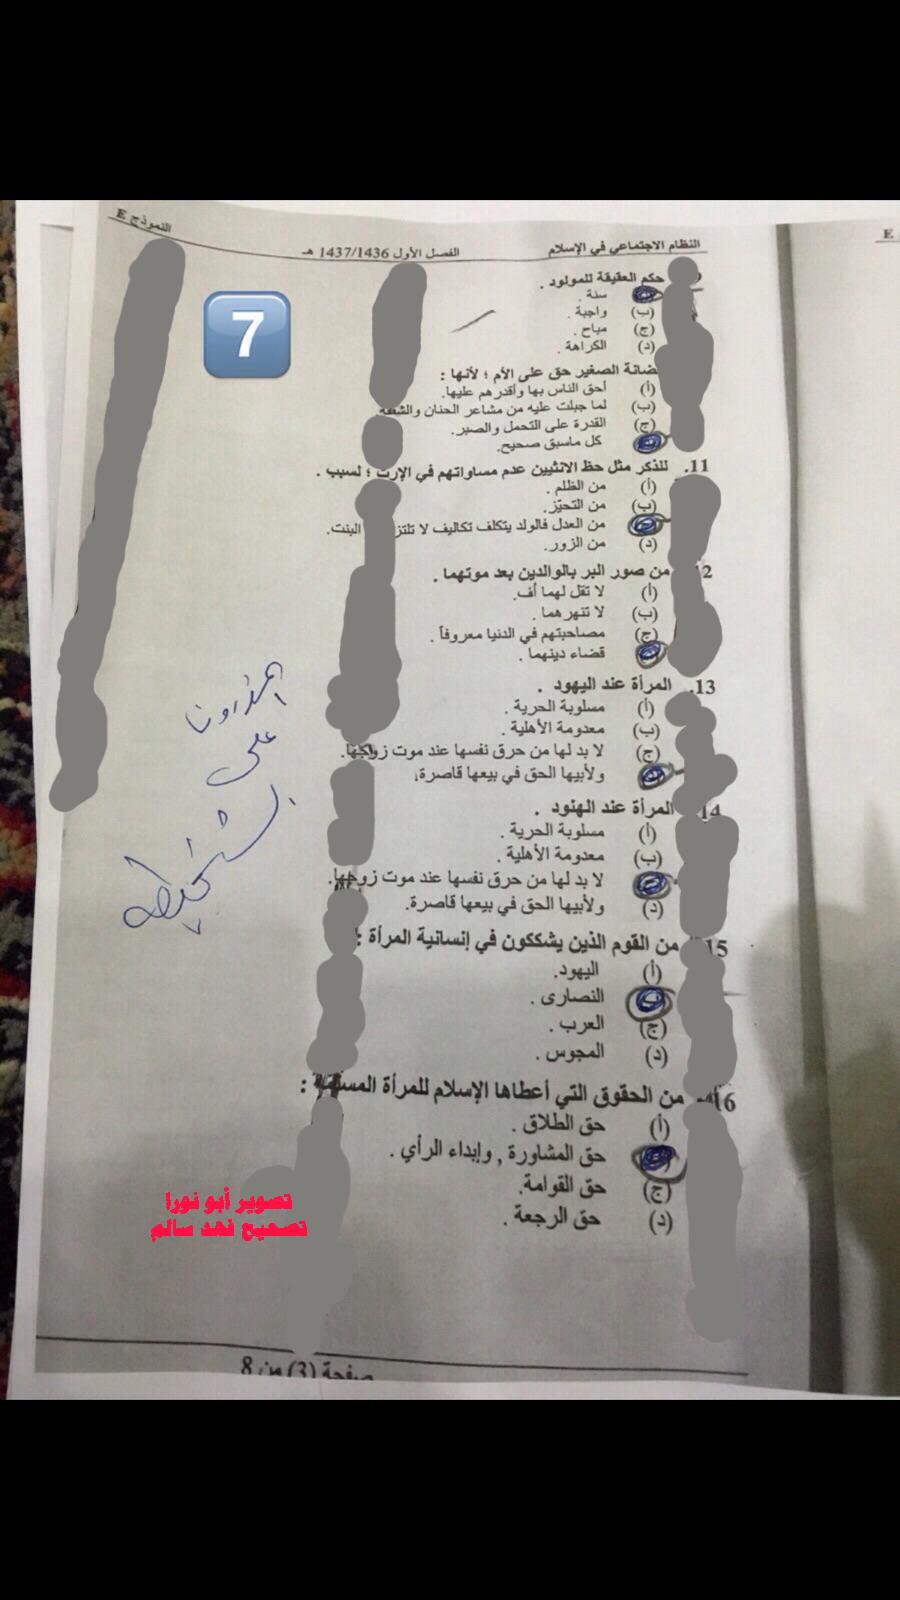 النظام الاجتماعي في الإسلام الفصل الأول 1437/1436 هـ النموذج E
E
7
حكم العقيقة للمولود .
سنة .
(ب) واجبة .
(ج) مباح .
(د) الكراهة .
الصغير حق على الأم ؛ لأنها :
(أ) أحق الناس بها وأقدرهم عليها.
(ب) لما جبلت عليه من مشاعر الحنان والشفقة.
(ج) القدرة على التحمل والصبر.
كل ماسبق صحيح.
11. للذكر مثل حظ الانثيين عدم مساواتهم في الإرث ؛ لسبب .
(أ) من الظلم .
(ب) من التحيّز.
من العدل فالولد يتكلف تكاليف لا البنت.
(د) من الزور.
من صور البر بالوالدين بعد موتهما .
(أ) لا تقل لهما أف.
(ب) لا تنهرهما .
(ج) مصاحبتهم في الدنيا معروفاً .
قضاء دينهما .
13. المرأة عند اليهود .
(أ) مسلوبة الحرية .
(ب) معدومة الأهلية .
(ج) لا بد لها من حرق نفسها عند موت زوجها.
ولأبيها الحق في بيعها قاصرة.
14 المرأة عند الهنود .
(أ) مسلوبة الحرية .
(ب) معدومة الأهلية .
لا بد لها من حرق نفسها عند موت زوجها.
(د) ولأبيها الحق في بيعها قاصرة.
15 من القوم الذين يشككون في إنسانية المرأة :
(أ) اليهود.
النصارى .
(ج) العرب .
(د) المجوس .
16. من الحقوق التي أعطاها الإسلام للمرأة :
(أ) حق الطلاق .
حق المشاورة , وإبداء الرأي .
(ج) حق القوامة.
(د) حق الرجعة .
على
تصوير أبو نورا
تصحيح فهد سالم
صفحة (3) من 8